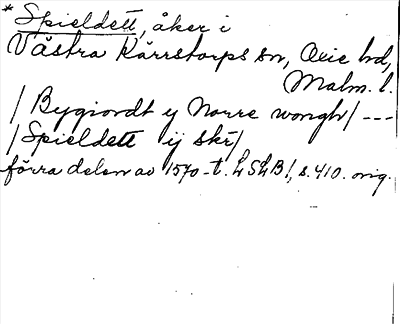 * Spieldett, åker i
Västra Kärrstorps sn, Oxie hd,
Malm. l.
/ Bygiordt y Norre wongh / ---
/ Spieldett ij skr /
förra delen av 1570-t. LSLB /, s. 410. orig.